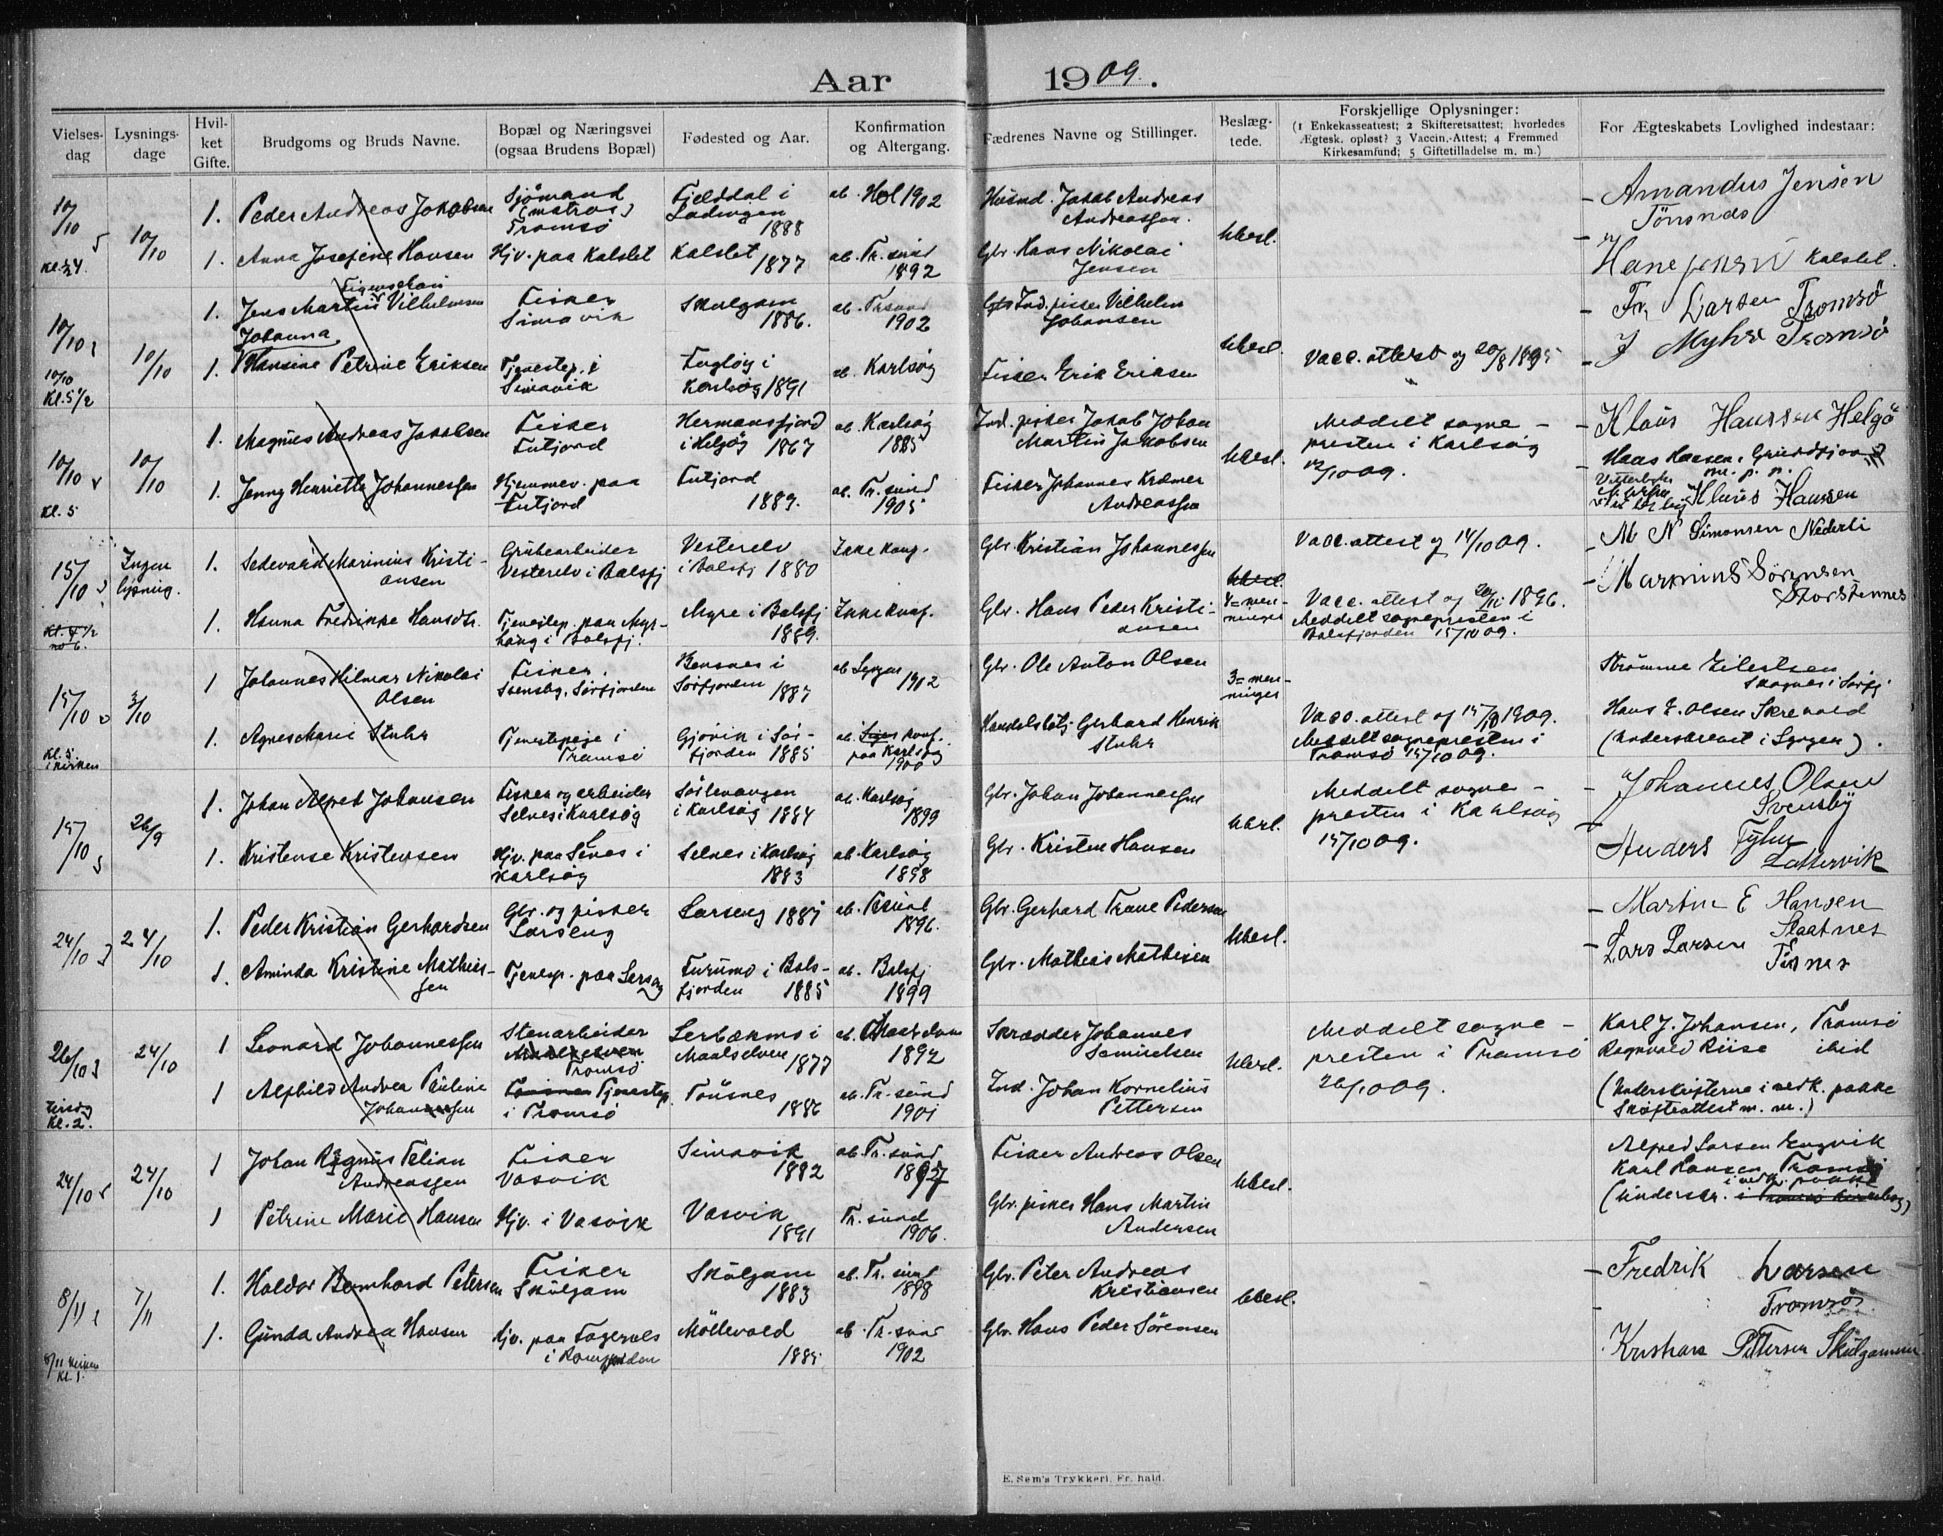 Aar 1909.
Vielses-dag
Lysnings-dage
Hvil-ket Gifte.
Brudgoms og Bruds Navne.
Bopæl og Næringsvei (ogsaa Brudens Bopæl)
Fødested og Aar.
Konfirmation og Altergang.
Fædrenes Navne og Stillinger.
Beslæg-tede.
Forskjellige Oplysninger: (1 Enkekasseattest; 2 Skifteretsattest; hvorledes Ægtesk. opløst? 3 Vaccin.-Attest; 4 Fremmed Kirkesamfund; 5 Giftetilladelse m. m.)
For Ægteskabets Lovlighed indestaar:
10/10 10/10 1. Peder Andreas Jakobsen Sjömand (matros) Tromsø Fjelddal i Lødingen 1888 Hol 1902 Husmd. Jakob Andreas Andreassen. Ubesl. Amandus Jensen Tönsnes
1. Anna Josefine Hansen Hjv. paa Kalslet Kalslet 1877 Tr.sund 1892 Gbr. Hans Nikolai Jensen Kalslet
10/10 10/10 1. Jens Martin Vilhelmsen Fisker Simavik Skulgam 1886. Tr.sund 1902 Ind. fisker Vilhelm Johansen Ubesl. Fr. Larsen Tromsö
Johanna
1. Hansine Petrine Eriksen Tjenestep. i Simavik Fugløy i Karlsøy 1891 Karlsøy Fisker Erik Eriksen Vacc. attest J Myhre Tromsö
10/10 Kl. 5 1/2
10/10 10/10 1. Magnus Andreas Jakobsen Fisker Futfjord Hermansfjord i Helgøy 1867 Karlsøy 1885 Ind. fisker Jakob Johan Martin Jakobsen Ubesl. Meddelt sogne-presten i Karlsøy 12/10 09. Klaus Hanssen Helgö
Kl. 5 1. Jenny Henriette Johannessen Hjemmev. paa Futfjord Futfjord 1889. Tr.sund 1905 Fisker Johannes Krämer Andreassen Hans Hansen, m. p. p. Klaus Hanssen
15/10 Ingen lysning. 1. Sedevald Marinius Kristi-ansen Grubearbeider Vesterelv i Balsfj Vesterelv i Balsfj 1880 Ikke konf. Gbr. Kristian Johannessen 4=men-ninger Vacc. attest af 14/10 09. M N Simonsen Nederli
1. Hanna Fredrikke Hansdtr. Tjenestep. paa i Balsfj. Myre i Balsfj 1889. Ikke konf. Gbr. Hans Peder Kristi-ansen Vacc. attest 1896. Meddelt sognepresten i Balsfjorden 15/10 09. Marinius Sörensen Storstennes
15/10 3/10 1 Johannes Hilmar Nikolai Olsen Fisker, Svensby, Sørfjorden Bensnes i Sørfjorden 1887 Lyngen 1902 Gbr. Ole Anton Olsen 3=men-ninger Strømme Eilertsen
Kl. 5. i kirken 1. Agnes Marie Stuhr Tjenestepige i Tromsø Gjøvik i Sør-fjorden 1885 konf. paa Karlsøy 1900 Handelsbetj. Gerhard Henrik Stuhr Vacc. attest af 1909. Meddelt sognepresten i Tromsø 15/10 09. Hans E. Olsen (Underskrevet i Lyngen).
15/10 26/9 1. Johan Alfred Johansen Fisker og arbeider Selnes i Karlsøy i Karlsøy 1884 Karlsøy 1899 Gbr. Johan Johannessen Ubesl. Meddelt sogne-presten i Karlsøy 15/10 09. Johannes Olsen Svensby
1. Kristense Kristensen Hjv. paa Selnes i Karlsøy Selnes i Karlsøy 1883 Karlsøy 1898 Gbr. Kristen Hansen Anders
24/10 24/10 1. Peder Kristian Gerhardsen Gbr. og fisker Larseng Larseng 1881 Tr.sund 1896. Gbr. Gerhard Trane Pedersen Ubesl. Martin E Hansen
1. Aminda Kristine Mathis-sen Tjenestep. paa Larseng Furumo i Bals-fjorden 1885 Balsfj 1899 Gbr. Mathias Mathisen Lars Larsen
26/10 24/10 1 Leonard Johannessen Stenarbeider Tromsø i Maalselven 1877 1892 Skrædder Johannes Samuelsen Ubesl. Meddelt sogne-presten i Tromsø 26/10 09. Karl J. Johansen, Tromsø Ragnvald Riise ibid
Tirsdag Kl. 2. 1 Alfhild Andrea Pauline Johannessen Tjenestep. i Tromsø Tönsnes 1886 Tr.sund 1901 Ind. Johan Kornelius Pettersen (Underskrifterne i vedk. pakke m. m.)
24/10 24/10 1 Johan Andreassen Fisker Vasvik Simavik 1882 Tr.sund 1897 Fisker Andreas Olsen Ubesl. Alfred Larsen Engvik Karl Hansen Tromsø
1 Petrine Marie Hansen Hjv. i Vasvik Vasvik 1891 Tr.sund 1906. Gbr. fisker Hans Martin Andersen
8/11 7/11 1. Haldor Bernhard Petersen Fisker Skulgam Skulgam 1883 Tr.sund 1898 Gbr. Peter Andreas Kristiansen Ubesl. Fredrik Larsen Tromsö
8/11 kirken Kl. 1. 1. Gunda Andrea Hansen Hjv. paa Fagernes i Ramfjorden Möllevold Tr.sund 1902 Gbr. Hans Peder Sörensen Pettersen
E. Sem's Trykkeri, Fr.hald.